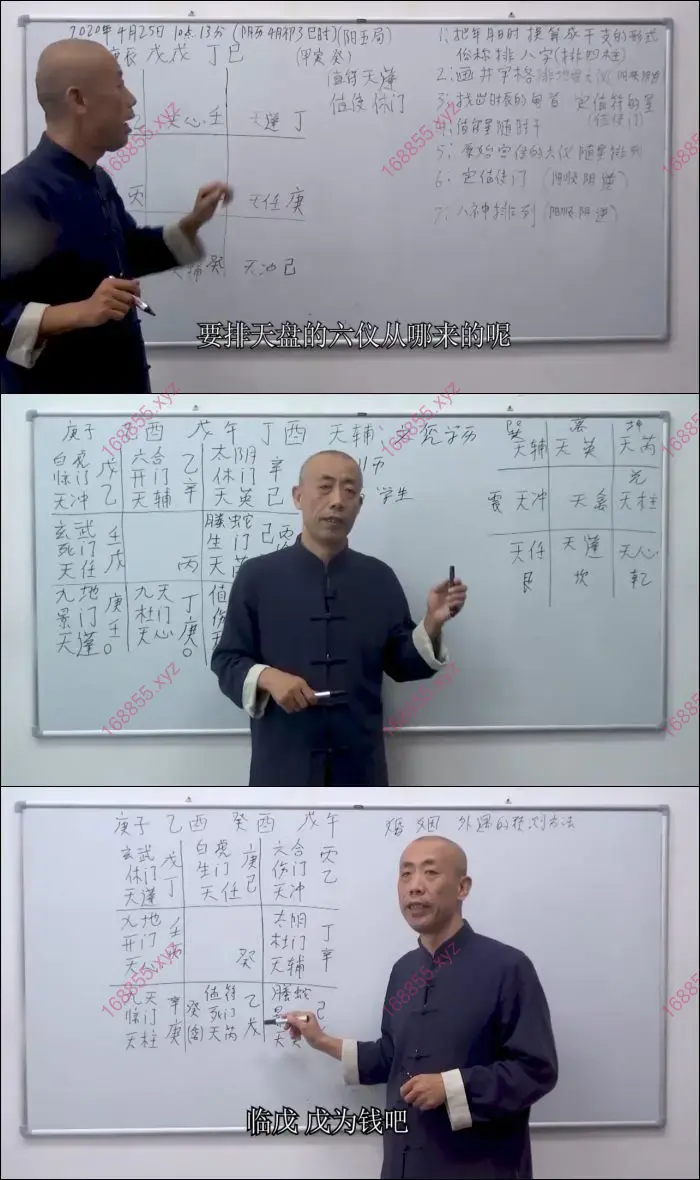 2020年4月25日 10点13分 (阴历4月初3巳时) (阳五局)
庚辰 戊戌 丁巳
(甲寅 癸)
值符 天蓬
值使 休门
天心 壬
天蓬 丁
天任 庚
天冲 己
1; 把年月日时 换算成干支的形式
俗称排八字(排四柱)
2; 画井字格
3; 找出时辰的旬首 定值符的星
(值使门)
4; 值符星随时干
5; 原始宫位的六仪 随星排列
6; 定值使门 (阳顺阴逆)
7; 八神排列 (阳顺阴逆)
168855.xyz
168855.xyz
要排天盘的六仪从哪来的呢
庚子 乙酉 戊午 丁酉 天辅
学历
学生
白虎 戊
惊门
天冲 乙
六合 乙
开门
天辅 辛
太阴
休门 辛
天英 己
玄武 壬
死门
天任 戊
丙
螣蛇
生门 己丙
天芮
九地 庚
景门
天蓬 壬
九天 丁
杜门
天心 庚
值
离
坤
天辅 天英 天芮
兑
震 天冲 天禽 天柱
天任 天蓬 天心
艮 坎 乾
168855.xyz
168855.xyz
168855.xyz
168855.xyz
庚子 乙酉 癸酉 戊午
婚姻 外遇的预测方法
玄武 戊
休门
天蓬 丁
白虎 庚
生门
天任 己
六合 丙
伤门
天冲 乙
九地 壬
开门
天心
癸
太阴 丁
杜门
天辅 辛
九天 辛
惊门
天柱 庚
值符 乙
癸 死门
(禽) 天芮 戊
螣蛇 己
168855.xyz
168855.xyz
临戊 戊为钱吧